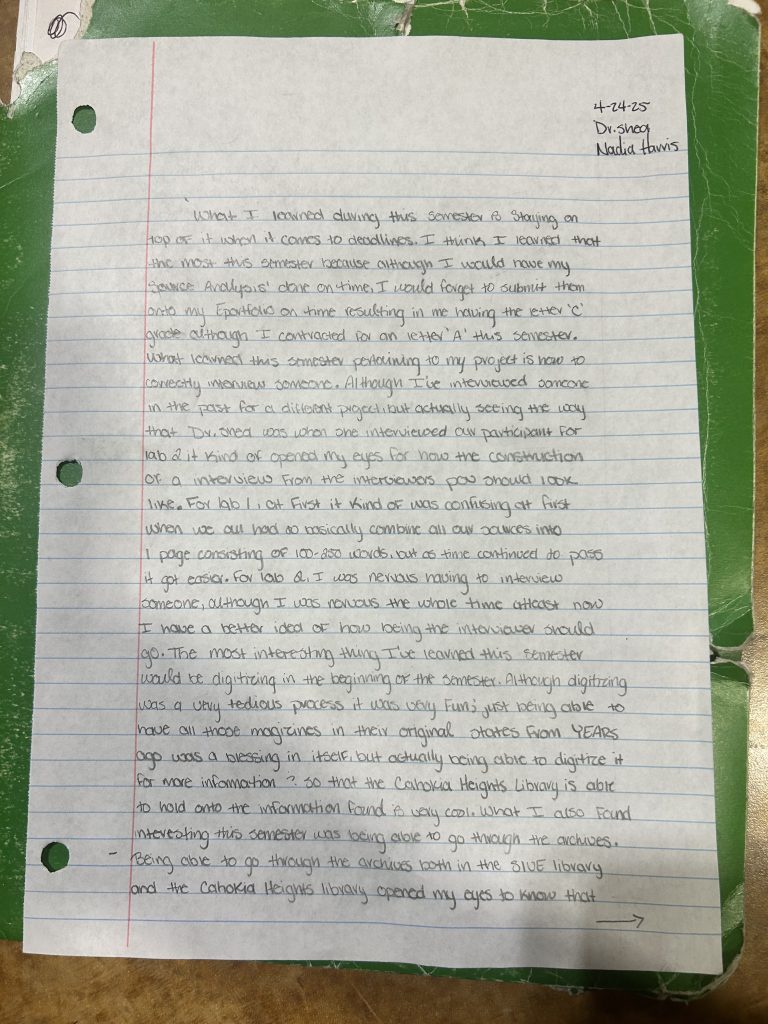 4-24-25
Dr. Shea
Nadia Harris
What I learned during this semester is staying on
top of it when it comes to deadlines. I think I learned that
the most this semester because although I would have my
Source Analysis' done on time, I would forget to submit them
onto my Eportfolio on time resulting in me having the letter 'C'
grade although I contracted for an letter 'A' this semester.
What learned this semester pertaining to my project is how to
correctly interview someone. Although I've interviewed someone
in the past for a different project, but actually seeing the way
that Dr. Shea was when she interviewed our participant for
lab 2 it kind of opened my eyes for how the construction
of a interview from the interviewers pov should look
like. For lab 1, at first it kind of was confusing at first
when we all had to basically combine all our sources into
1 page consisting of 100-250 words, but as time continued to pass
it got easier. For lab 2, I was nervous having to interview
someone, although I was nervous the whole time atleast now
I have a better idea of how being the interviewer should
go. The most interesting thing I've learned this semester
would be digitizing in the beginning of the semester. Although digitizing
was a very tedious process it was very fun; just being able to
have all those magizines in their original states from YEARS
ago was a blessing in itself, but actually being able to digitize it
for more information ? so that the Cahokia Heights Library is able
to hold onto the information found is very cool. What I also found
interesting this semester was being able to go through the archives.
- Being able to go through the archives both in the SIUE library
and the Cahokia Heights library opened my eyes to know that
→